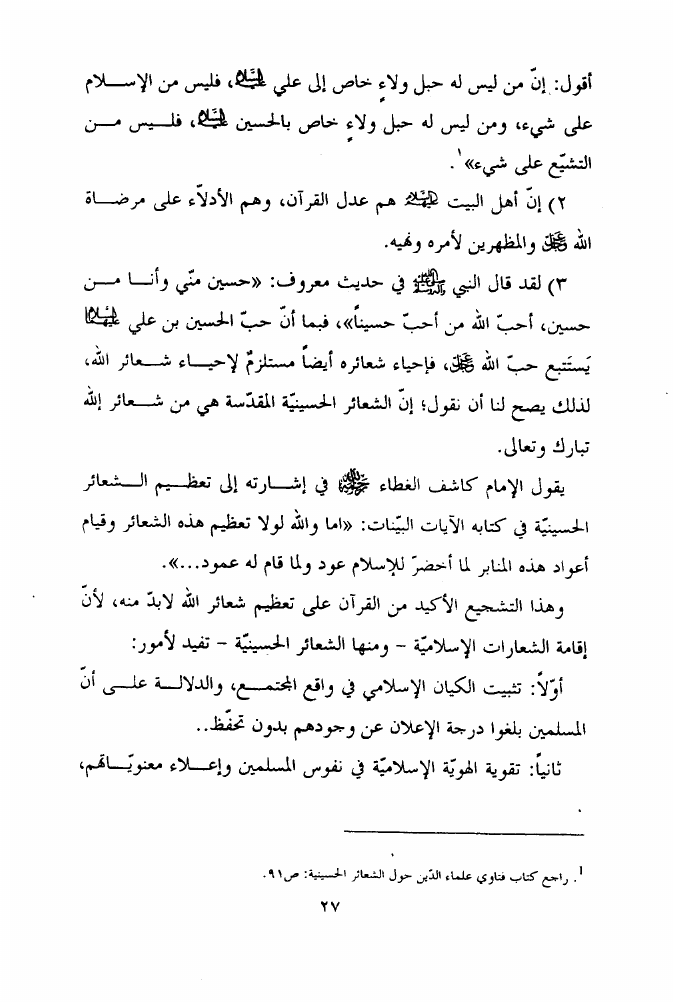 أقول: إنّ من ليس له حبل ولاءٍ خاص إلى علي عليه السلام، فليس من الإسلام
على شيء، ومن ليس له حبل ولاءٍ خاص بالحسين عليه السلام، فليس من
التشيّع على شيء»¹.
٢) إنّ أهل البيت عليهم السلام هم عدل القرآن، وهم الأدلاّء على مرضاة
الله عز وجل والمظهرين لأمره ونهيه.
٣) لقد قال النبي صلى الله عليه وآله وسلم في حديث معروف: «حسين منّي وأنا من
حسين، أحبّ الله من أحبّ حسيناً»، فبما أنّ حبّ الحسين بن علي عليهما السلام
يَستَتبع حبّ الله عز وجل، فإحياء شعائره أيضاً مستلزمٌ لإحياء شعائر الله،
لذلك يصح لنا أن نقول؛ إنّ الشعائر الحسينيّة المقدّسة هي من شعائر إلله
تبارك وتعالى.
يقول الإمام كاشف الغطاء رحمه الله في إشارته إلى تعظيم الشعائر
الحسينيّة في كتابه الآيات البيّنات: «اما والله لولا تعظيم هذه الشعائر وقيام
أعواد هذه المنابر لما أخضرّ للإسلام عود ولما قام له عمود...».
وهذا التشجيع الأكيد من القرآن على تعظيم شعائر الله لابدّ منه، لأنّ
إقامة الشعارات الإسلاميّة – ومنها الشعائر الحسينيّة – تفيد لأمور:
أوّلاً: تثبيت الكيان الإسلامي في واقع المجتمع، والدلالة على أنّ
المسلمين بلغوا درجة الإعلان عن وجودهم بدون تحفّظ..
ثانياً: تقوية الهويّة الإسلاميّة في نفوس المسلمين وإعلاء معنويّاتهم،
¹. راجع كتاب فتاوي علماء الدّين حول الشعائر الحسينية: ص٩١.
٢٧